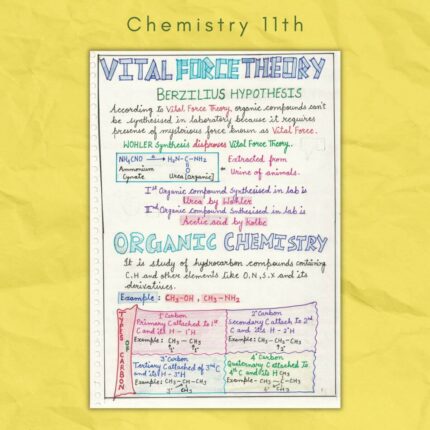 Chemistry 11th
VITAL FORCE THEORY
BERZILIUS HYPOTHESIS
According to Vital Force Theory, organic compounds can't
be synthesised in laboratory because it requires
presense of mysterious force known as Vital Force.
WOHLER Synthesis disproves Vital Force Theory.
NH₄CNO Δ→ H₂N-C-NH₂ Extracted from
O
Ammonium Urea [Organic] Urine of animals.
Cynate
Iˢᵗ Organic compound Synthesised in lab is
Urea by Wohler
IIⁿᵈ Organic compound Snthesised in lab is
Acetic acid by Kolbe
ORGANIC CHEMISTRY
It is study of hydrocarbon compounds containing
C, H and other elements like O, N, S, X and its
derivatives.
Example : CH₃-OH , CH₃-NH₂
TYPES OF CARBON
1° Carbon
Primary C attached to 1ˢᵗ
C and its H - 1°H
Example : CH₃ - CH₃
1°
2° Carbon
Secondary C attach to 2ⁿᵈ
C and its H - 2°H
Example : CH₃-CH₂-CH₃
2°
3° Carbon
Tertiary C attached of 3ʳᵈ C
and its H - 3°H
Example : CH₃-CH-CH₃
3° CH₃
4° Carbon
Quaternary C attached to
4ᵗʰ C and its H CH₃
Example - CH₃-C-CH₃
CH₃